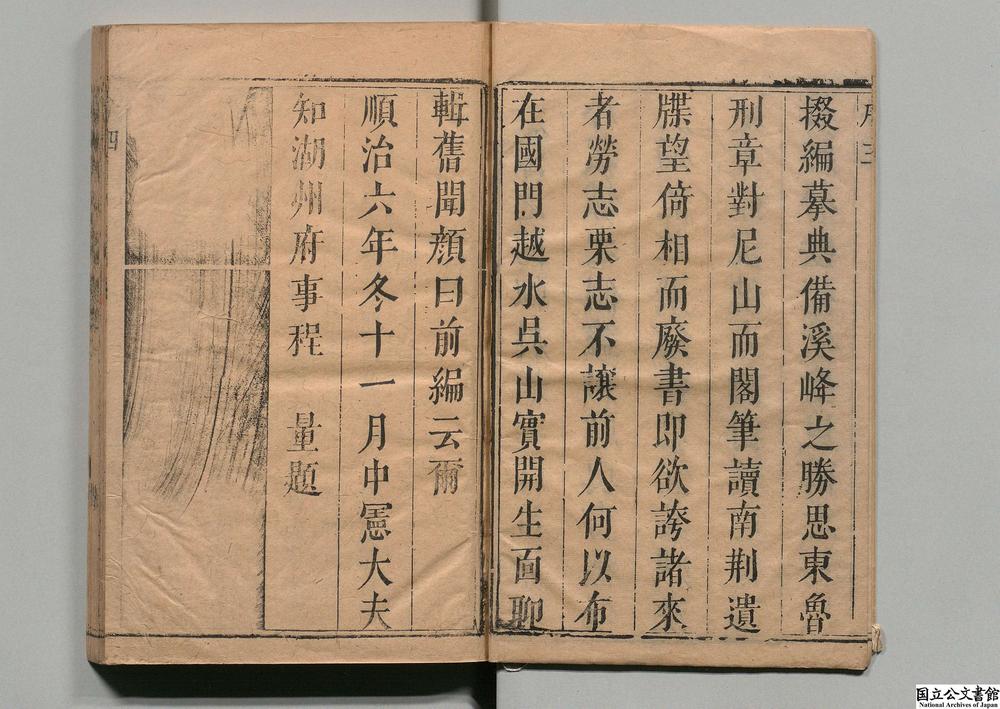 序 三
掇編摹典備溪峰之勝思東魯
刑章對尼山而閣筆讀南荆遺
牒望倚相而廢書即欲誇諸來
者勞志栗志不讓前人何以布
在國門越水吳山實開生面聊
輯舊聞顔曰前編云爾
順治六年冬十一月中憲大夫
知湖州府事程　量題
四
国立公文書館
National Archives of Japan